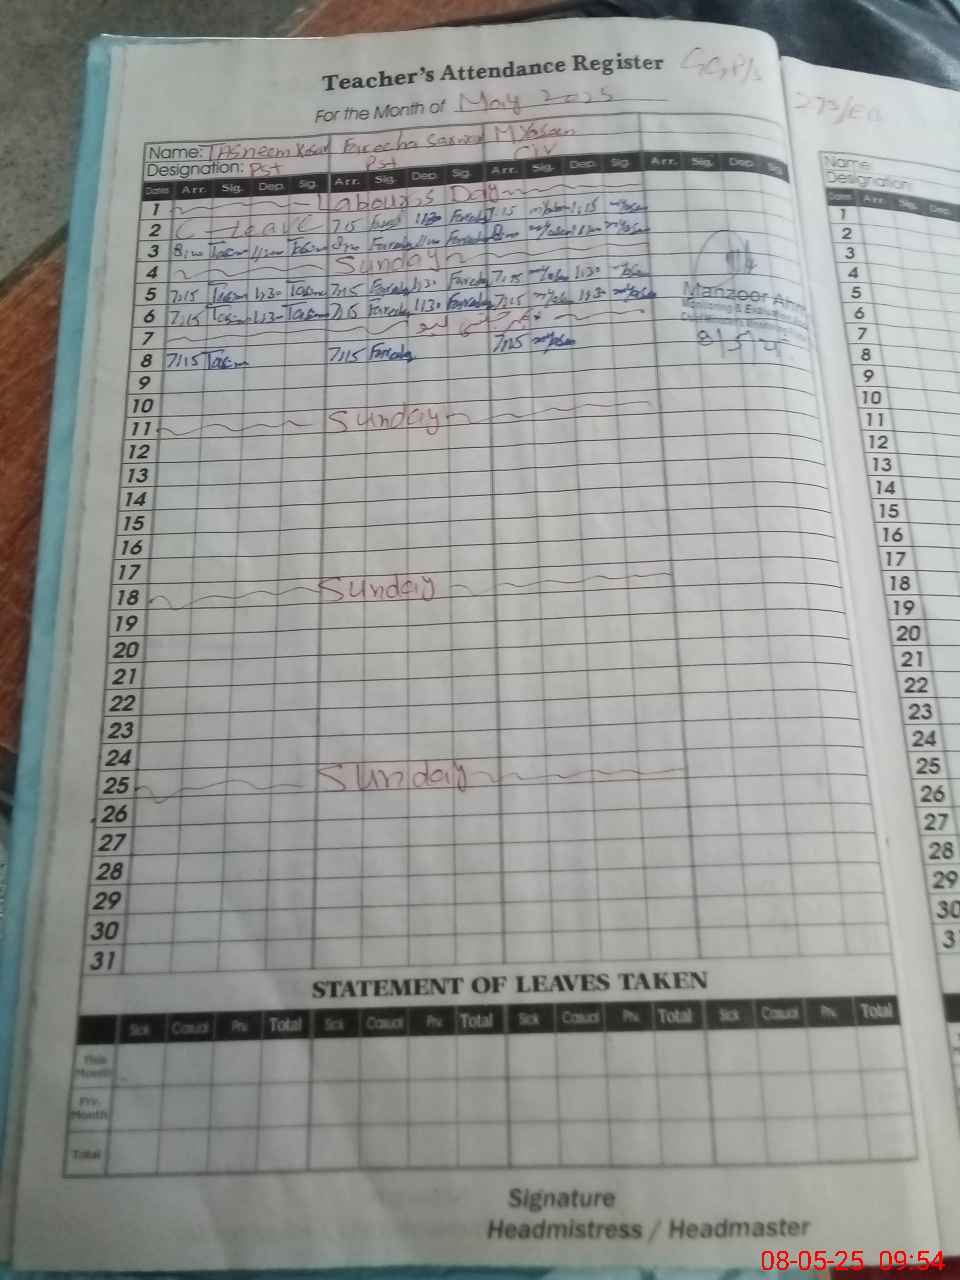 Teacher's Attendance Register GGP/S 273/EB
For the Month of May 2025
Name: Tasneem Kosar Fareeha Sarwar M Yaseen
Designation: PST PST CIV
Dates Arr. Sig. Dep. Sig. Arr. Sig. Dep. Sig. Arr. Sig. Dep. Sig. Arr. Sig. Dep. Sig.
1 Labour,s Day
2 C-Leave 7:15 1:30 7:15 1:15
3 8:00 11:00 8:00 11:00 Fareeha 8:00
4 Sunday
5 7:15 Tasnim 1:30 Tasnim 7:15 Fareeha 1:30 Fareeha 7:15 1:30
6 7:15 Tasnim 1:30 Tasnim 7:15 Fareeha 1:30 Fareeha 7:15 1:30
7
8 7:15 Tasnim 7:15 Fareeha 7:15
Manzoor
8/5/25
9
10
11 Sunday
12
13
14
15
16
17
18 Sunday
19
20
21
22
23
24
25 Sunday
26
27
28
29
30
31
STATEMENT OF LEAVES TAKEN
Sick Casual Prv. Total Sick Casual Prv. Total Sick Casual Prv. Total Sick Casual Prv. Total
This Month
Prv. Month
Total
Signature
Headmistress / Headmaster
Name:
Designation:
Dates Arr. Sig. Dep.
1
2
3
4
5
6
7
8
9
10
11
12
13
14
15
16
17
18
19
20
21
22
23
24
25
26
27
28
29
30
3
08-05-25 09:54